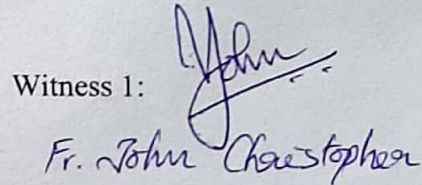 Witness 1: John
Fr. John Christopher